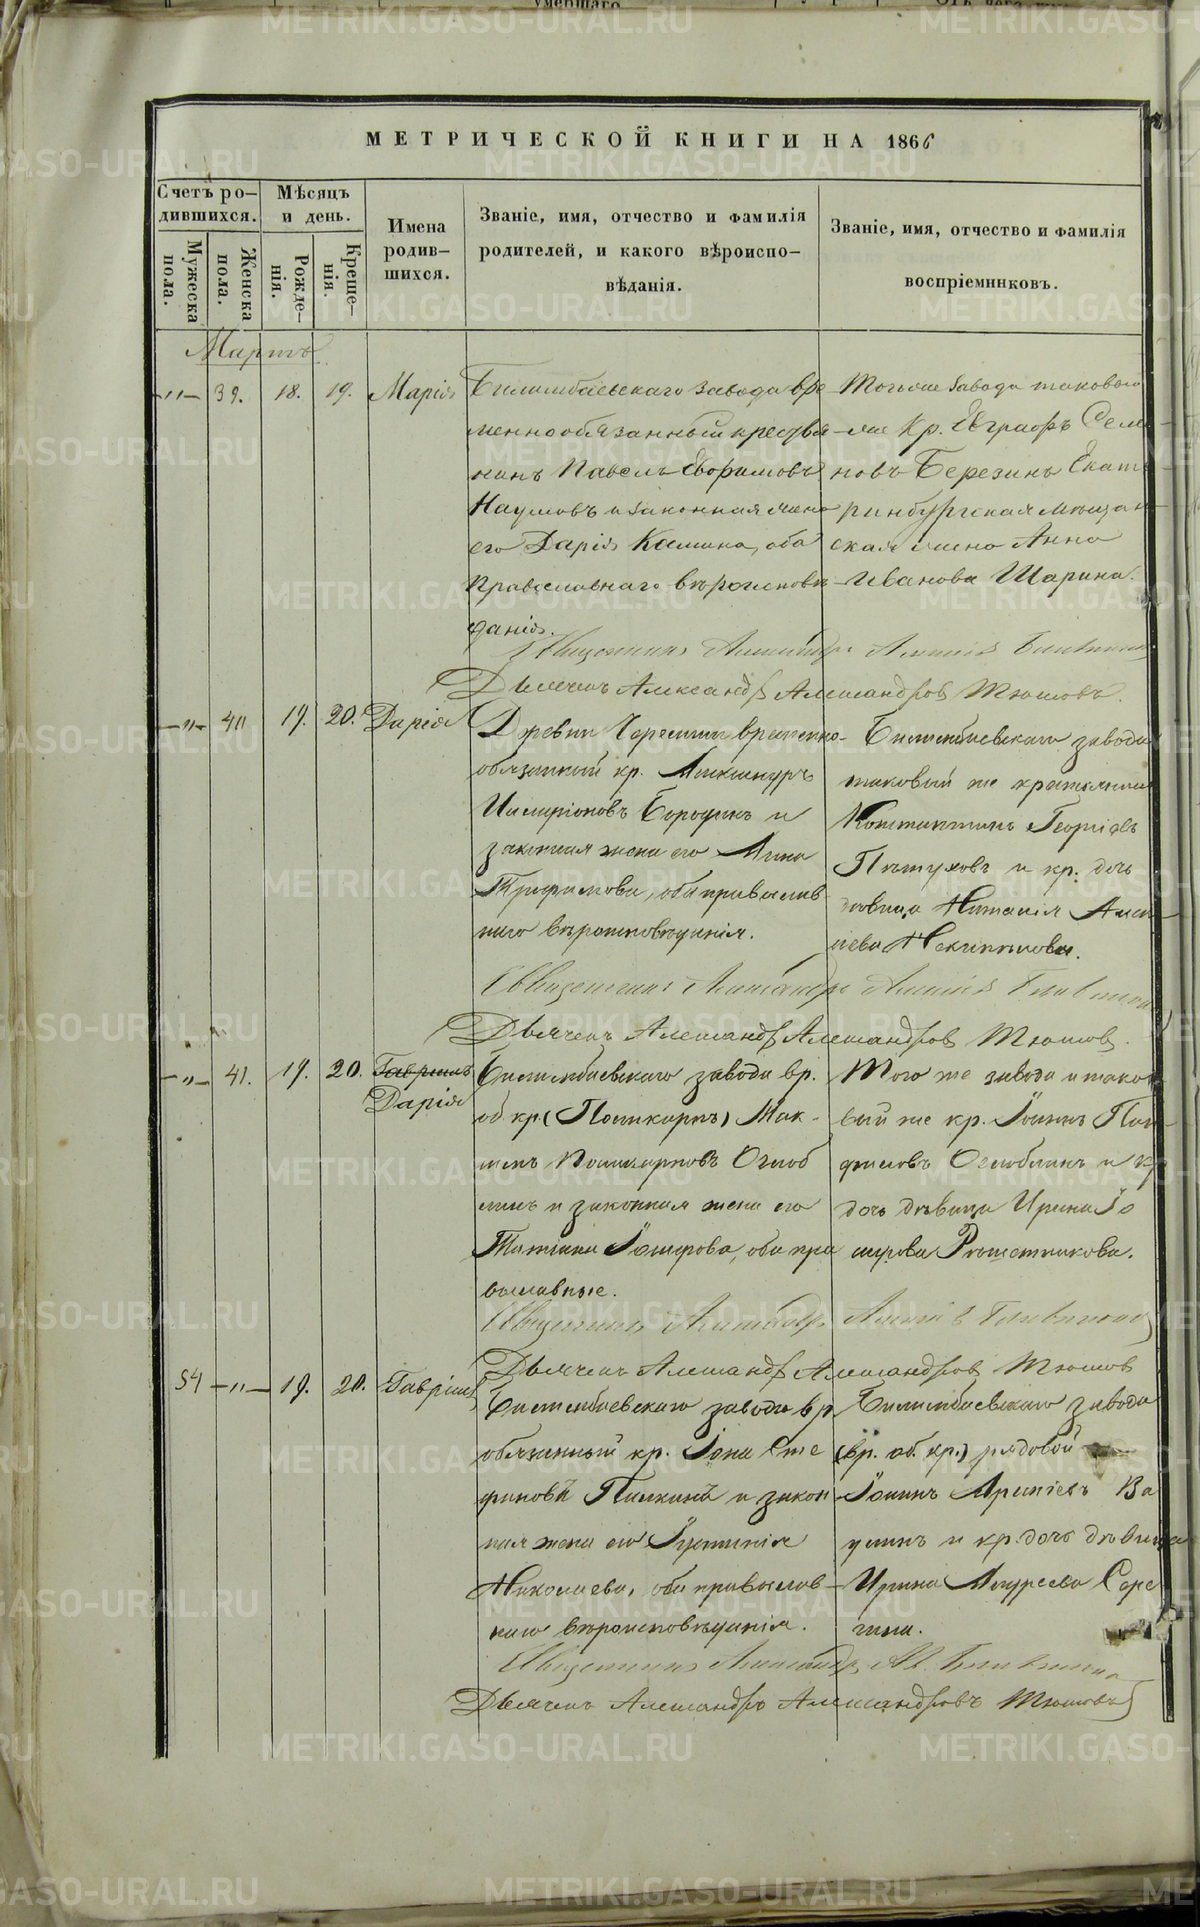 МЕТРИЧЕСКОЙ КНИГИ НА 1866
Счетъ ро-
дившихся.
Мужеска
пола.
Женска
пола.
Мѣсяцъ
и день.
Рожде-
нія.
Креще-
нія.
Имена
родив-
шихся.
Званіе, имя, отчество и фамилія
родителей, и какого вѣроиспо-
вѣданія.
Званіе, имя, отчество и фамилія
воспріемниковъ.
Мартъ
-"- 39. 18. 19. Марія
Билимбаевскаго завода вре
менно обязанный крестья
нинъ Павелъ Ефимовъ
Наумовъ и законная жена
его Дарія, оба
Православнаго вѣроисповѣ-
данія.
Тогоже завода таковый
же Кр. Евграфъ Семе-
новъ Березинъ Екате
ринбургская мѣщан-
ская жена Анна
Иванова Шарина.
Священникъ
Дьячекъ Александръ Александровъ Тюшовъ.
-"- 40 19. 20. Дарія
Деревни временно-
обязанный кр.
Бородинъ и
законная жена его Анна
Трофимова, оба православ
наго вѣроисповѣданія.
Билимбаевскаго завода
таковый же крестьянинъ
Константинъ Георгіевъ
Пѣтуховъ и кр. дочь
дѣвица Наталія Алек
сѣева
Священникъ
Дьячекъ Александръ Александровъ Тюшовъ.
-"- 41. 19. 20. Гавріилъ
Дарія
Билимбаевскаго завода вр.
об кр (Поликарпъ) Мак-
симъ Поликарповъ Оглоб
линъ и законная жена его
Татіана, оба пра
вославные.
Того же завода и тако
вый же кр. Іоаннъ Пан-
филовъ Оглоблинъ и кр
дочь дѣвица Ирина
Рѣшетникова.
Священникъ
Дьячекъ Александръ Александровъ Тюшовъ
54 -"- 19. 20. Гавріилъ
Билимбаевскаго завода вр
обязанный кр. Іона Сте
фановъ и закон
ная жена его Іустинія
Николаева, оба православ-
наго вѣроисповѣданія.
Билимбаевскаго завода
(вр. об. кр.) рядовой
Іоаннъ Ва
улинъ и кр. дочь дѣвица
Ирина Андреева Сере
гина.
Священникъ
Дьячекъ Александръ Александровъ Тюшовъ
METRIKI.GASO-URAL.RU